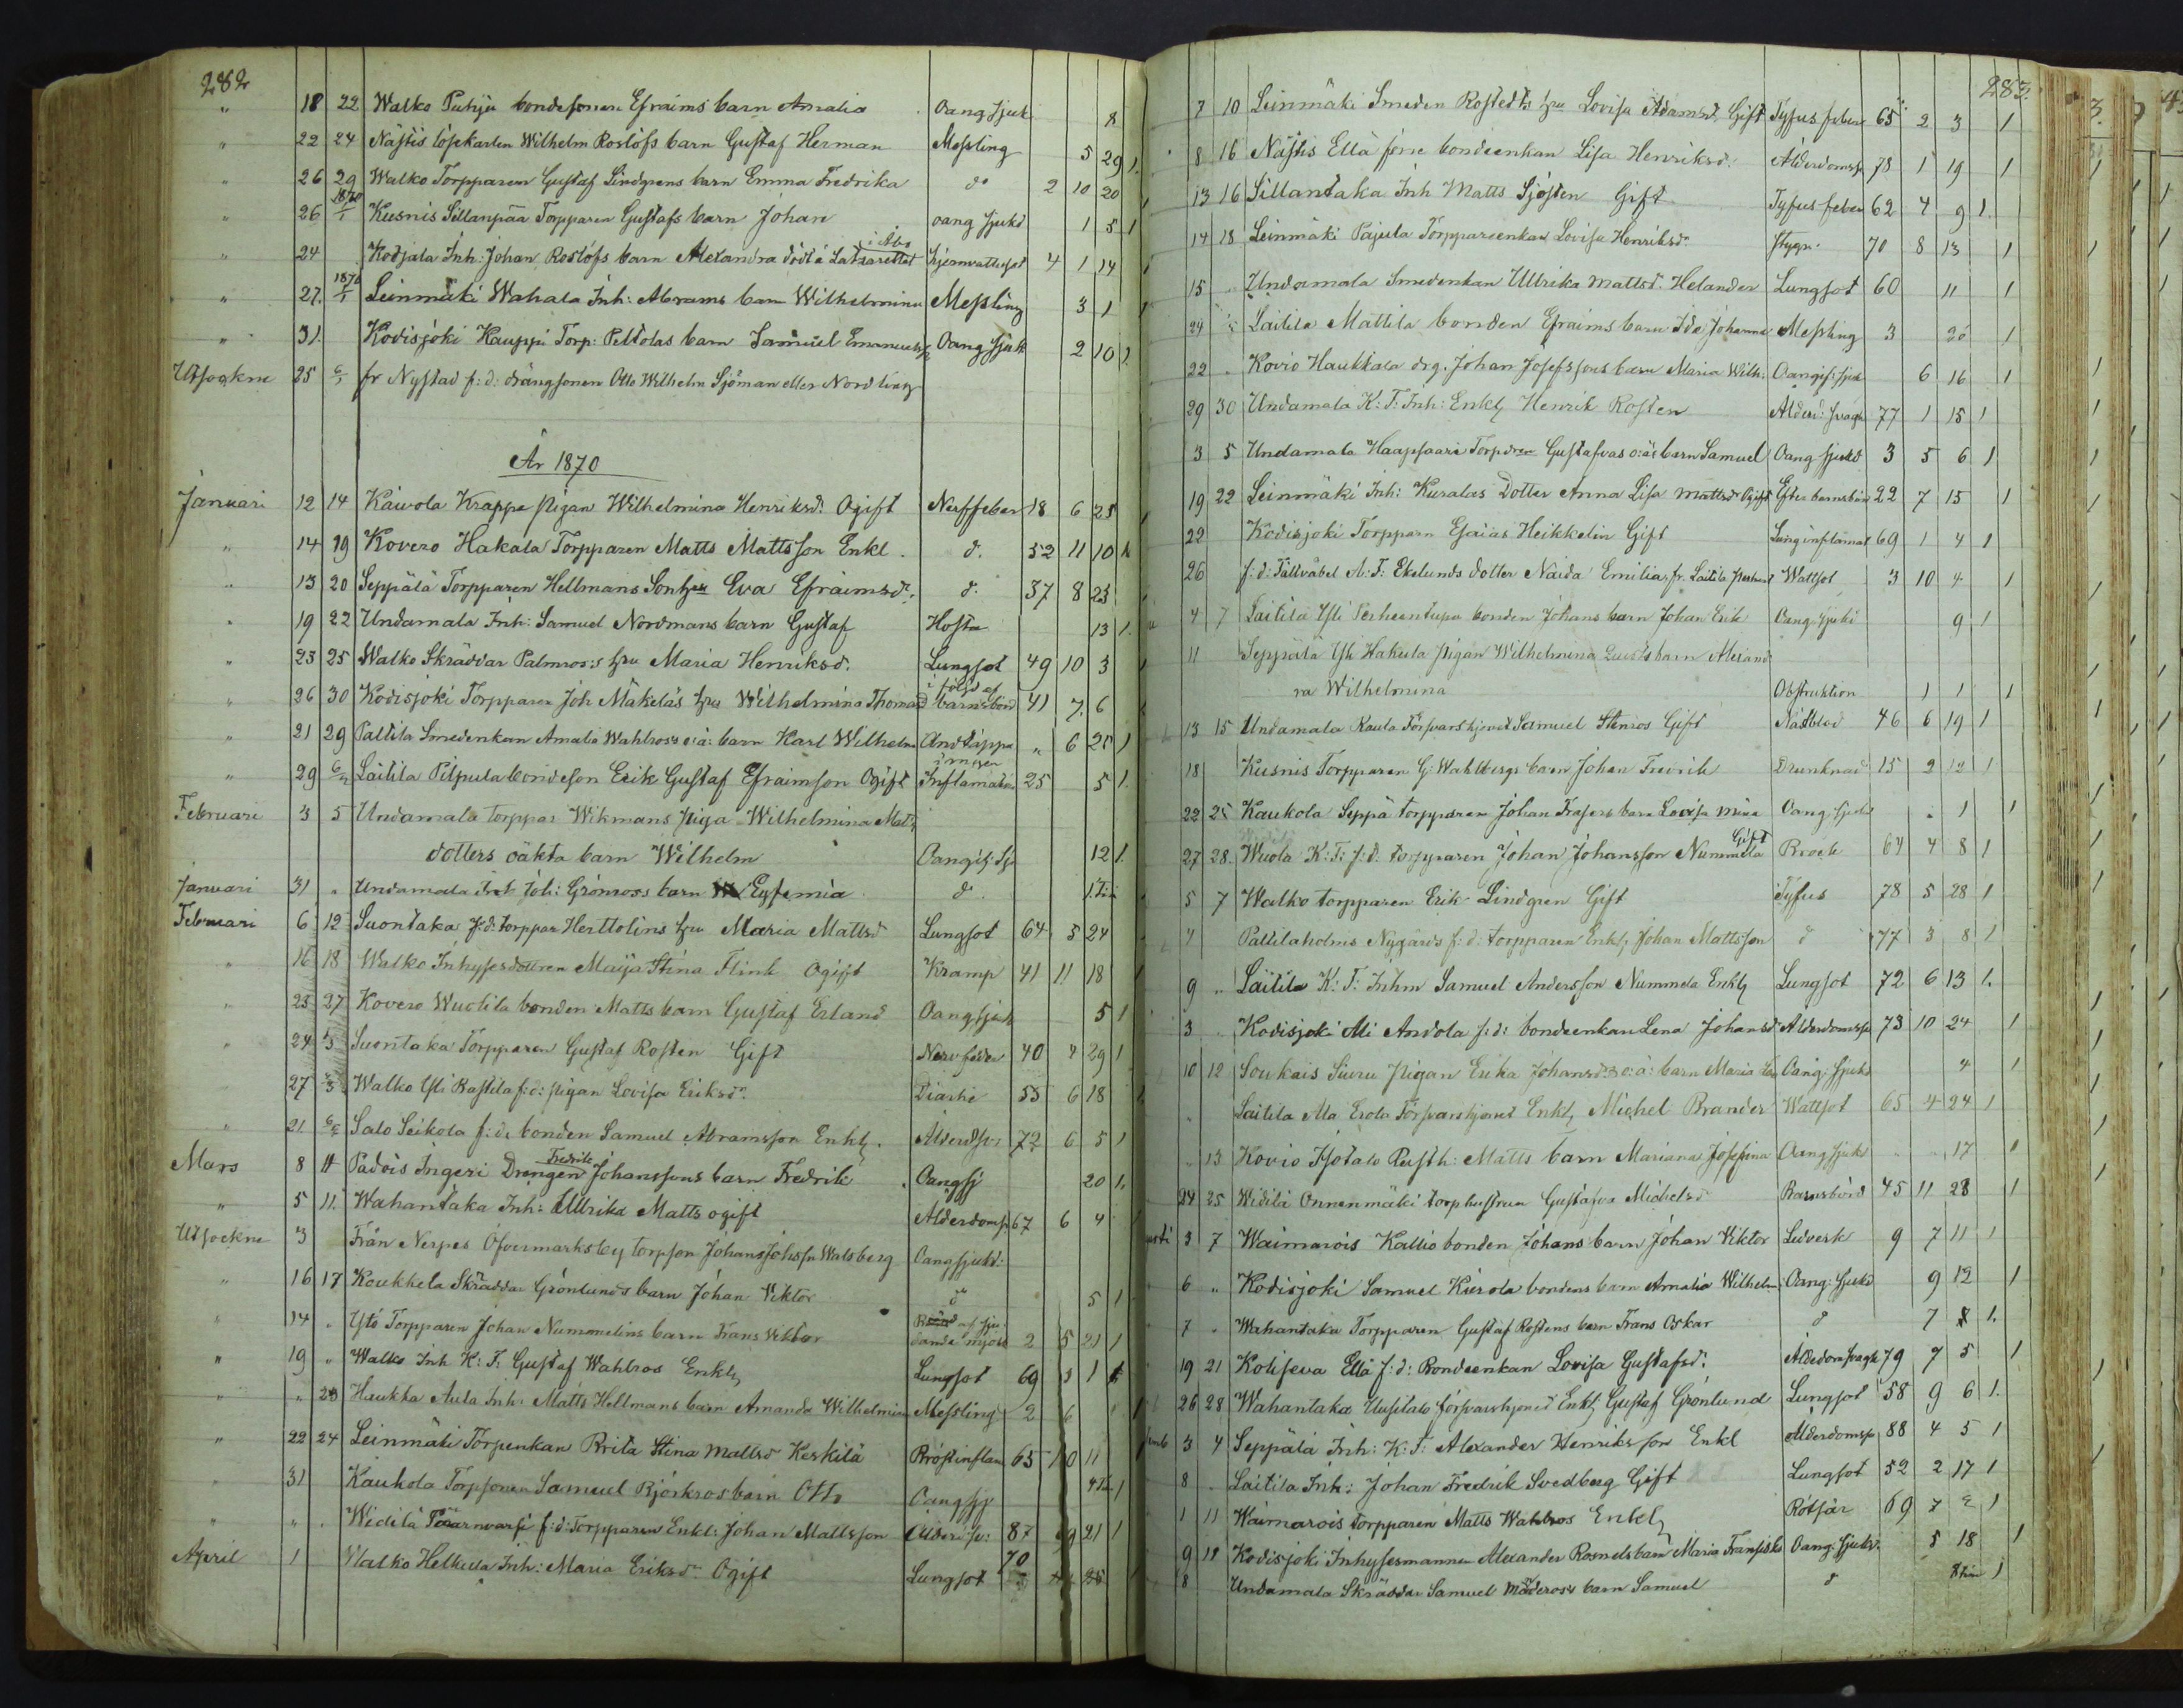 282
" 18 22 Walko Puhju bondesonen Efraims barn Amalia Oang sjuk 8
" 22 24 Nästis löskarlen Wilhelm Roslöfs barn Gustaf Herman Messling 5 29 1.
" 26 29 Walko Torpparen Gustaf Lindgrens barn Emma Fredrika do 2 10 20
1870
" 26 1/1 Kusnis Sillanpää Torpparen Gustafs barn Johan oang sjukd 1 5 1
i Åbo
" 24 Kodjala Inh: Johan Roslöfs barn Alexandra död å Latsarettet hjernvattusot 4 1 14
1870
" 27. 1/1 Leinmäki Wahala Inh: Abrams barn Wilhelmina Messling 3 1
" 31. Kodisjoki Kauppi Torp: Peltolas barn Samuel Emanuel Oang sjuk 2 10 1.
Utsockne 25 6/1 fr Nystad f: d: drängsonen Otto Wilhelm Sjöman eller Nordling
År 1870
Januari 12 14 Kaivola Krappe pigan Wilhelmina Henriksd: Ogift Nerffeber 18 6 25
" 14 19 Kovero Hakala Torpparen Matts Mattsson Enkl. d. 52 11 10
" 13 20 Seppälä Torpparen Hellmans Sonhu Eva Efraimsdr. d: 37 8 23
" 19 22 Undamala Inh: Samuel Nordmans barn Gustaf Hosta 13 1.
" 23 25 Walko Skräddar Palmros:s hu Maria Henriksd. Lungsot 49 10 3
i följd af
" 26 30 Kodisjoki Torpparen Joh Mäkeläs hu Wilhelmina Thomasd barnsbörd 41 7. 6
" 21 29 Paltila Smedenkan Amalia Wahlros's o: ä: barn Karl Wilhelm Andtäppa " 6 25 1
" 29 6/2 Laitila Pilpula bondeson Erik Gustaf Efraimson Ogift Inflamation 25 5 1.
Februari 3 5 Undamala torppar Wikmans piga Wilhelmina Matts
dotters oäkta barn Wilhelm Oangif: Sj 12 1.
Januari 31 " Undamala Inh Joh: Grönross barn Eufemia d. 1. tim
Februari 6 12 Suontaka f: d. torppar Herttolins hu Maria Mattsd Lungsot 64 5 24
" 16 18 Walko Inhysesdottren Maija Stina Flink Ogift Kramp 41 11 18
" 25 27 Kovero Wuotila bonden Matts barn Gustaf Erland Oangsjuk 5 1
" 24 1/3 Suontaka Torpparen Gustaf Rosten Gift Nervfeber 40 4 29 1
" 27 2/3 Walko Yli Rastila f: d: pigan Lovisa Eriksdr. Diarhé 55 6 18
" 21. 6/3 Salo Seikola f: d: bonden Samuel Abramsson Enkl. Ålderdsv: 72 6 5 1
Fredrik
Mars 8 11 Padois Ingeri Drengen Johanssons barn Fredrik Oangsj 20 1.
" 5 11. Wahantaka Inh: Ullrika Matts ogift Ålderdoms. 67 6 4
Utsockne 3 Från Nerpes Öfvermarksby torpson Johans Johssn Walsberg Oangsjukd:
" 16 17 Kaukkela Skräddar Grönlunds barn Johan Viktor do 5 1
" 14 " Ytö Torpparen Johan Nummelins barn Frans Viktor Bränd af sju-
dande mjölk 2 5 21 1
" 19 " Walko Inh K: F: Gustaf Wahlros Enkl, Lungsot 69 3 1 1
" " 20 Haukka Aula Inh: Matts Hellmans barn Amanda Wilhelmina Messling 2 6
" 22 24 Leinmäki Torpenkan Brita Stina Mattsd Keskilä Bröstinflam 65 10 11
" 31 Kaukola Torpsonen Samuel Björkros barn Otto Oangsju 1
" " Widilä f: d: Torpparen Enkl: Johan Mattsson Ålderd sv: 87 9 21 1
April 1 Walko Helkula Inh: Maria Eriksdr Ogift Lungsot 70
283.
7 10 Leinmäki Smeden Rostedts hu Lovisa Adamsd. Gift Tyfus feber 65 2 3 1
8 16 Nästis Ella förre bondeenkan Lisa Henriksd: Ålderdomsv 78 1 19 1
13 16 Sillantaka Inh Matts Sjösten Gift Tyfus feber 62 4 9 1.
14 18 Leinmäki Pajula Torppareenkan Lovisa Henriksdr Stygn. 70 8 13 1
15 " Undamala Smedenkan Ullrika Mattsd. Helander Lungsot 60 11 1
24 Laitila Mattila bonden Efraims barn Ida Johanna Messling 3 20 1
22 " Kovio Haukkala drg. Johan Josefssons barn Maria Wilh. Oangif: sjuk 6 16 1
29 30 Undamala K: F: Inh: Enkl, Henrik Rosten Ålderd: svagh 77 1 15 1
3 5 Undamala Haapsaari Torpdrn Gustafvas o: äs barn Samuel Oang sjukd 3 5 6 1
19 22 Leinmäki Inh: Kuralas Dotter Anna Lisa Mattsdr Ogift Efter barnsbörd 22 7 15 1
22 Kodisjoki Torpparn Esaias Heikkelin Gift Lunginflamat 69 1 4 1
26 f: d: Fältväbel A: F: Ekelunds dotter Naida Emilia, fr. Laitila prestgård Wattsot 3 10 4 1
4 7 Laitila Yli Perheentupa bonden Johans barn Johan Erik Oang. sjukd 9 1
11 Seppälä Yli Hakula pigan Wilhelmina Lunds barn Alexand
ra Wilhelmina Obstruktion 1 1 1
13 15 Undamala Kaula Försvarskjonet Samuel Stenros Gift Nästblod 46 6 19 1
18 Kusnis Torpparen G: Wahlbergs barn Johan Fredrik Drunknad 15 2 12 1
22 25 Kaukola Seppä torpparen Johan Frasers barn Lovisa Mina Oang: sjukd " 1 1
Gift
27 28. Wuola K: F: f: d. torpparen Johan Johansson Nummela Brock 64 4 8 1
5 7 Walko torpparen Erik Lindgren Gift Tyfus 78 5 28 1
7 Paltilaholms Nygårds f: d: torpparen Enkl, Johan Mattsson d 77 3 8 1
9 " Laitila K: F: Inhm Samuel Andersson Nummela Enkl, Lungsot 72 6 13 1.
3 " Kodisjoki Ali Andola f: d: bondeenkan Lena Johansd Ålderdomssv 73 10 24 1
10 12 Soukais Siuru Pigan Erika Johansdrs o: ä: barn Maria Oang: sjukd 4 1
" Laitila Ala Erola Försvarshjonet Enkl, Michel Brander Wattsot 65 4 24 1
" 13 Kovio Isotalo Rusth: Matts barn Mariana Josefina Oang sjukd " " 17 1
24 25 Widilä Onnenmäki torphustrun Gustafva Michelsd Barnsbörd 45 11 28 1
3 7 Waimarois Kallio bonden Johans barn Johan Viktor Ledverk 9 7 11 1
6 " Kodisjoki Samuel Kiirola bondens barn Amalia Wilhelm: Oang: sjukd 9 12 1
7 " Wahantaka Torpparen Gustaf Rostens barn Frans Oskar d 7 8 1.
19 21 Kolijeva Ella f: d: Bondeenkan Lovisa Gustafsd: Ålderdomsvagh 79 7 5 1
26 28 Wahantaka Uusitalo försvarshjonet Enkl, Gustaf Grönlund Lungsot 58 9 6 1.
3 4 Seppälä Inh: K: F: Alexander Henriksson Enkl Ålderdomsv 88 4 5 1
8 " Laitila Inh: Johan Fredrik Svedberg Gift Lungsot 52 2 17 1
1 11 Waimarois torpparen Matts Wahlros Enkl, Rötsår 69 7 2 1
9 18 Kodisjoki Inhysesmannen Alexander Rosnels barn Maria Fransiska Oang: sjukd. 5 18 1
8 Undamala Skräddar Samuel barn Samuel d 8 tim 1